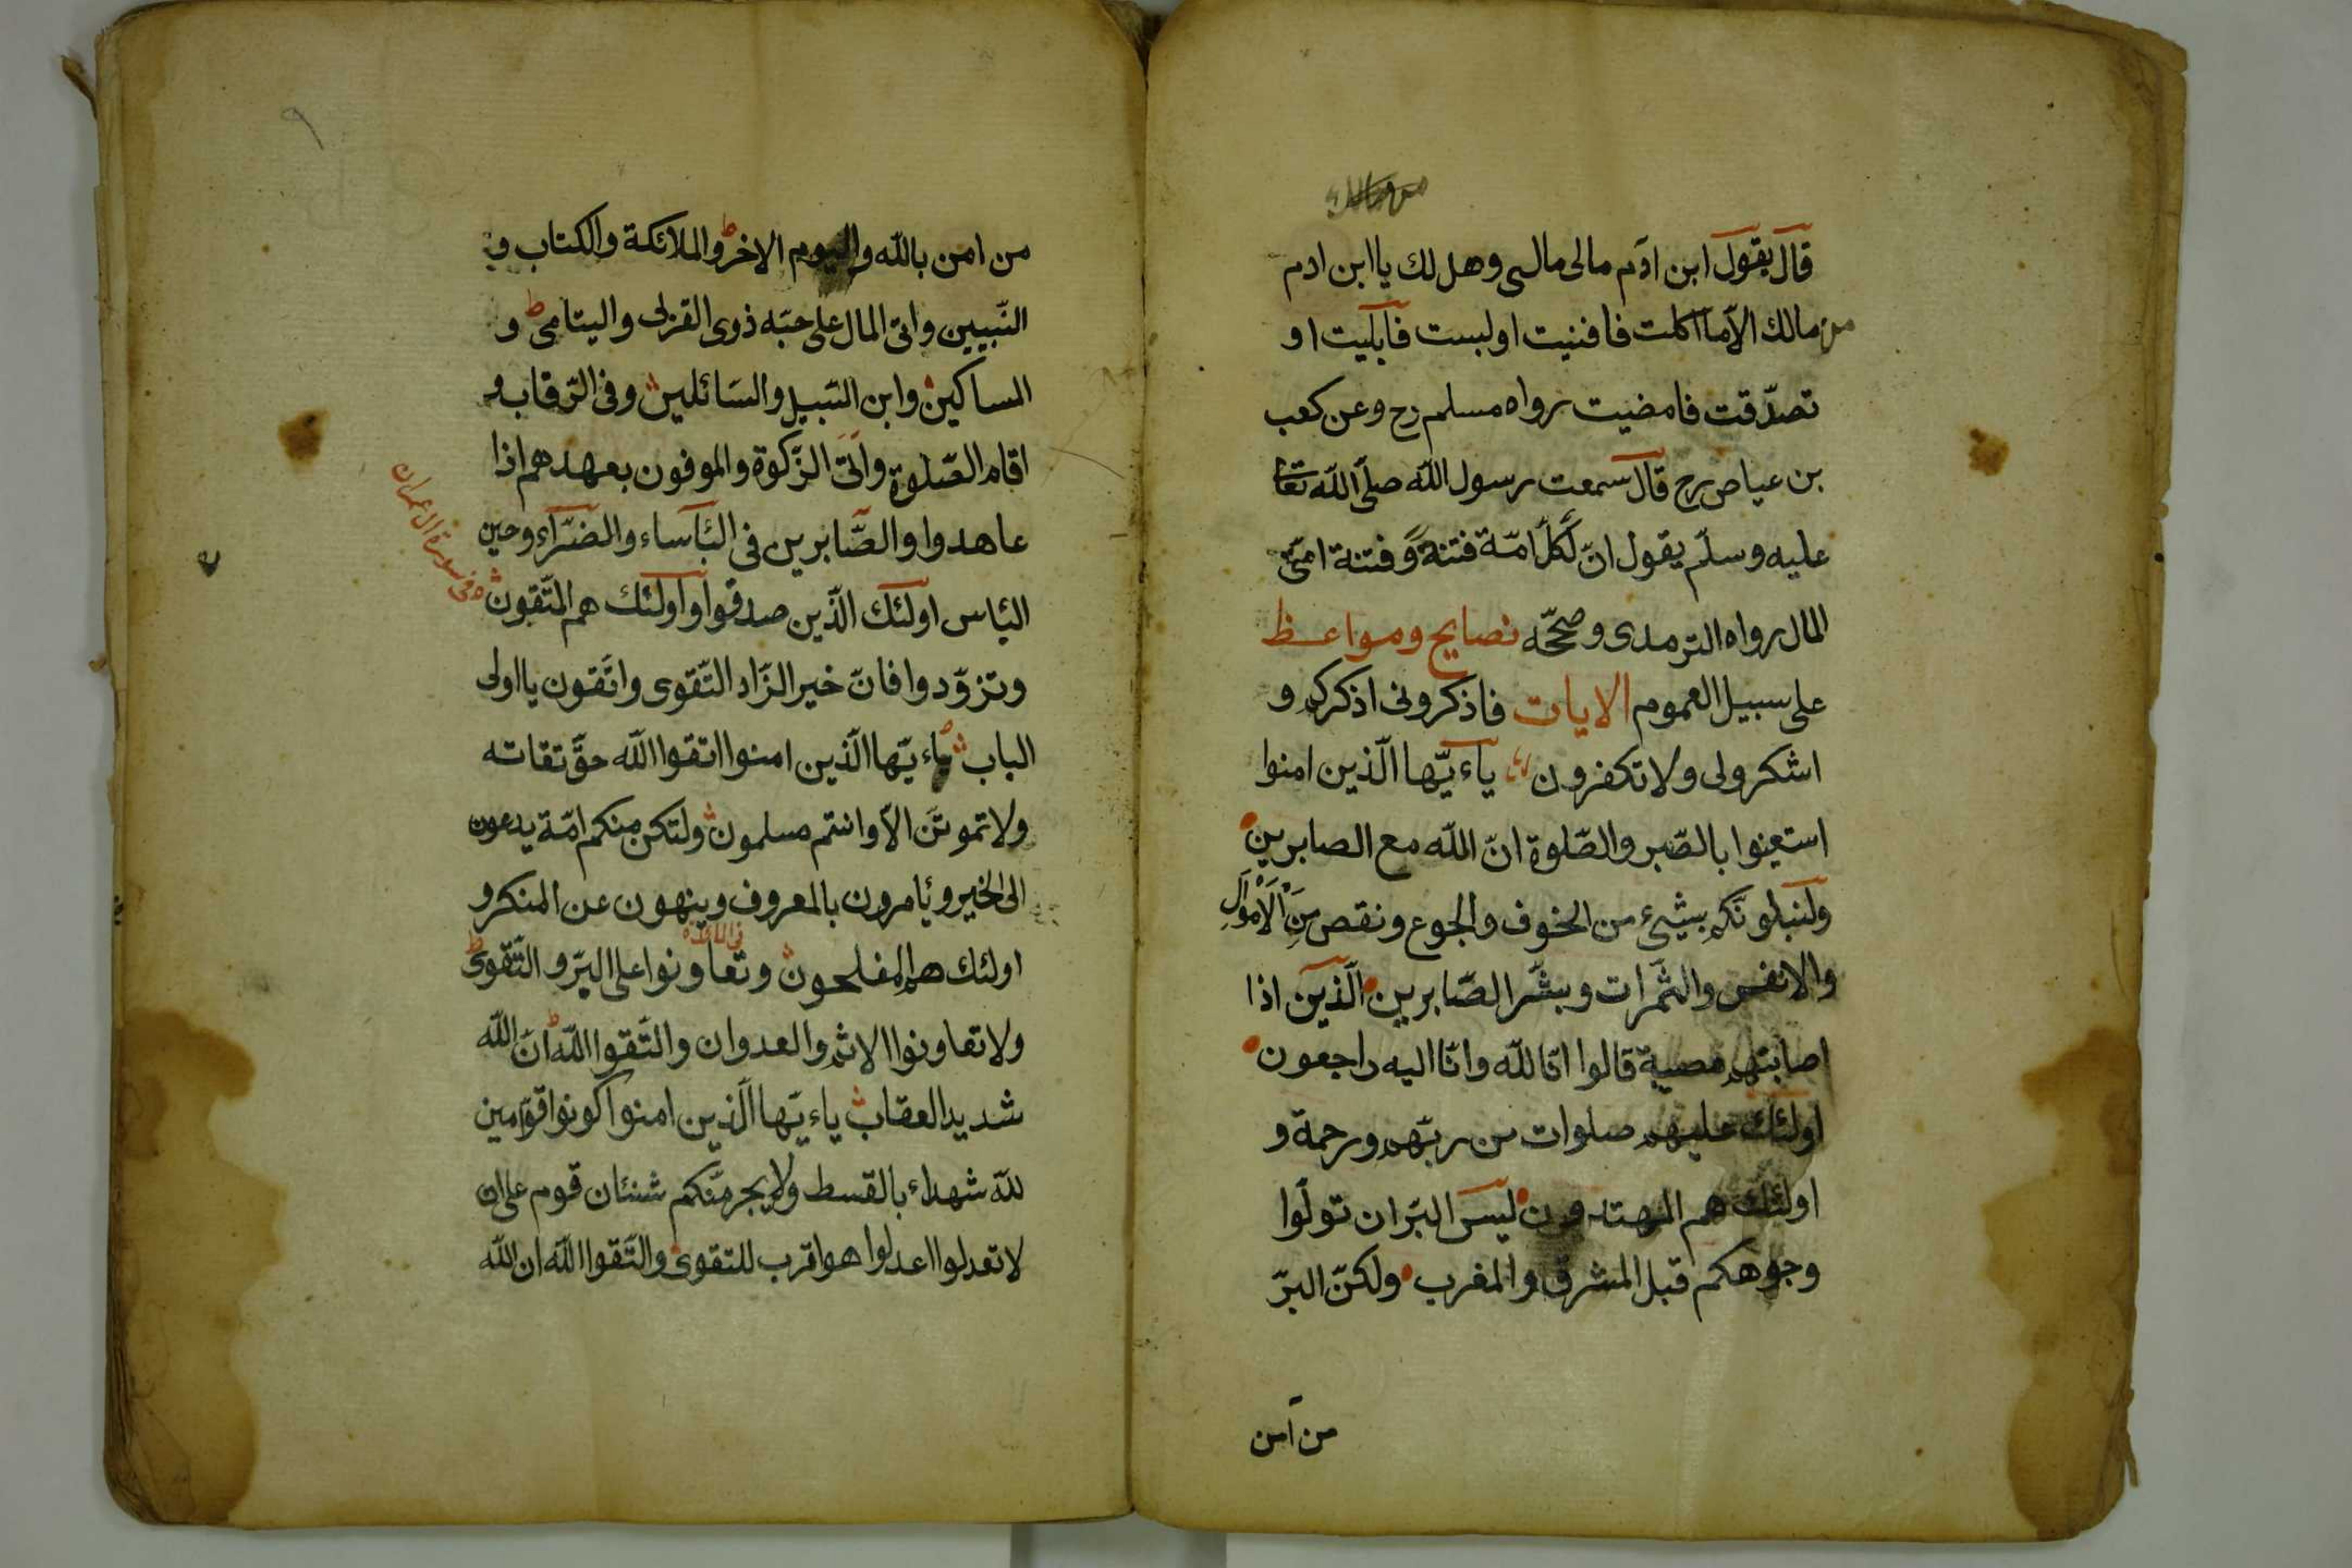 قال يقول ابن ادم مالى مالى وهل لك يا ابن ادم
من مالك الّا ما اكلت فافنيت او لبست فابليت او
تصدّقت فامضيت رواه مسلم رح وعن كعب
بن عياض رح قال سمعت رسول الله صلّى الله تعا
عليه وسلّم يقول انّ لكلّ امّة فتنة وفتنة امّتى
المال رواه الترمدى وصحّحه نصايح ومواعظ
على سبيل العموم الايات فاذكرونى اذكركم و
اشكرولى ولا تكفرون ياءيّها الّذين امنوا
استعينوا بالصّبر والصّلوة انّ الله مع الصابرين
ولنبلونّكم بشىء من الخوف والجوع ونقص مِنَ الْاَمْوَالِ
والانفس والثّمرات وبشّر الصّابرين الّذين اذا
اصابتهم مصيبة قالوا انّا لله وانّا اليه راجعون
اولئك عليهم صلوات من ربّهم ورحمة و
اولئك هم المهتدون ليس البرّ ان تولّوا
وجوهكم قبل المشرق والمغرب ولكنّ البرّ
من آمن
٩
من امن بالله واليوم الاخر والملائكة والكتاب و
النّبيين واتى المال على حبّه ذوى القربى واليتامى و
المساكين وابن السّبيل والسّائلين وفى الرّقاب و
اقام الصّلوة واتى الزّكوة والموفون بعهدهم اذا
عاهدوا والصّابرين فى البأساء والضّرّاء وحين
البأس اولئك الّذين صدقوا واولئك هم المتّقون
فى سورة ال عمران
وتزوّدوا فانّ خير الزّاد التّقوى واتّقون يا اولى
الباب ياءيّها الّذين امنوا اتقوا الله حقّ تقاته
ولا تموتنّ الّا وانتم مسلمون ولتكن منكم امّة يدعون
الى الخير ويأمرون بالمعروف وينهون عن المنكر و
اولئك هم المفلحون وتعاونوا على البرّ والتّقوى
ولا تعاونوا الاثم والعدوان والتّقوا الله انّ الله
شديد العقاب ياءيّها الّذين امنوا كونوا قوّامين
لله شهداء بالقسط ولا يجرمنّكم شنئان قوم على ان
لا تعدلوا اعدلوا هو اقرب للتقوى والتّقوا الله ان الله